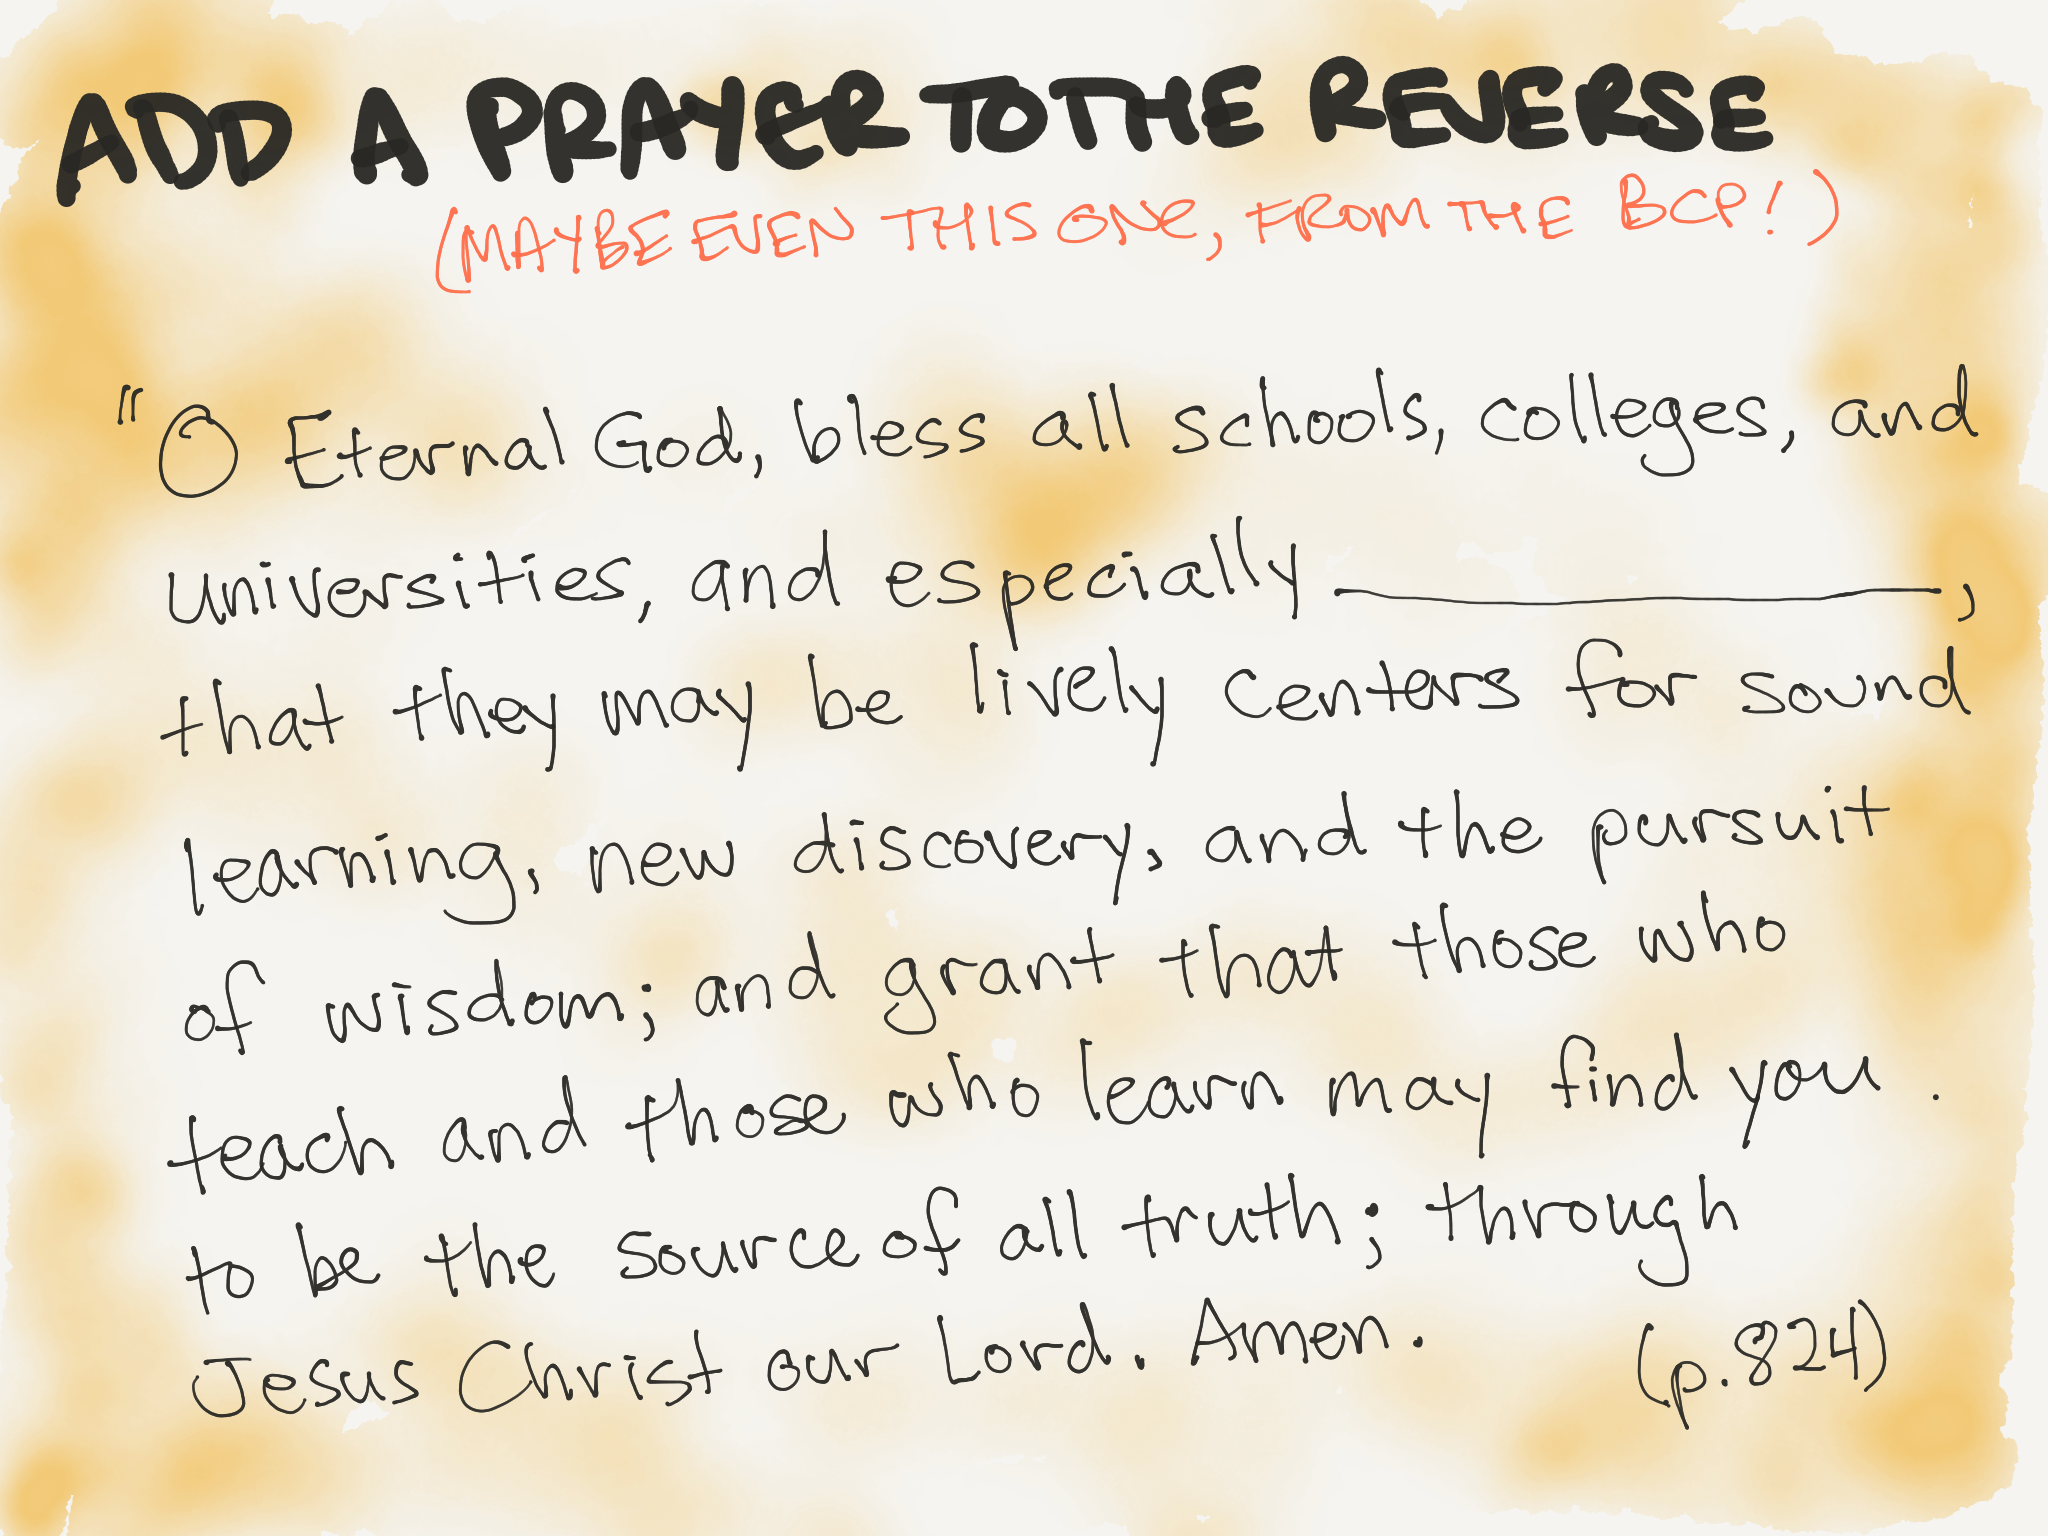 ADD A PRAYER TO THE REVERSE
(MAYBE EVEN THIS ONE, FROM THE BCP!)
"O Eternal God, bless all schools, colleges, and
universities, and especially __________,
that they may be lively centers for sound
learning, new discovery, and the pursuit
of wisdom; and grant that those who
teach and those who learn may find you .
to be the source of all truth; through
Jesus Christ our Lord. Amen. (p.824)